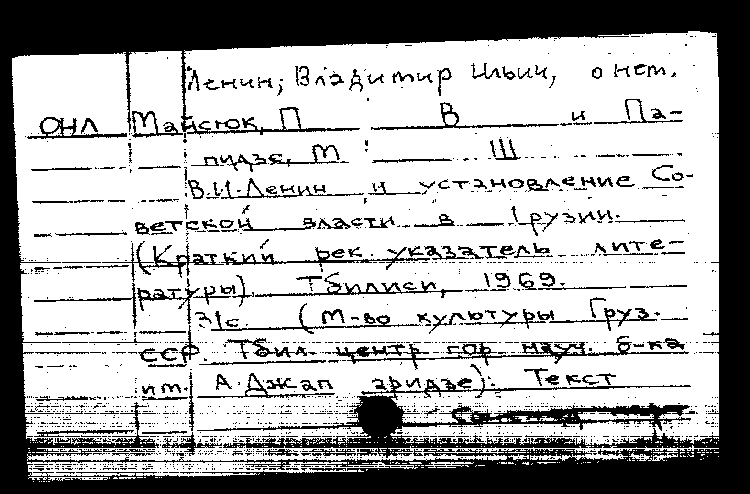 Ленин, Владимир Ильич, о нем.
ОНЛ Майсюк, П В и Па-
пидзе, М Ш
В.И.Ленин и установление Со-
ветской власти в Грузии.
(Краткий рек. указатель лите-
ратуры). Тбилиси, 1969.
31с (М-во культуры Груз.
ССР. Тбил. центр гор науч. б-ка
им. А.Джапаридзе). Текст